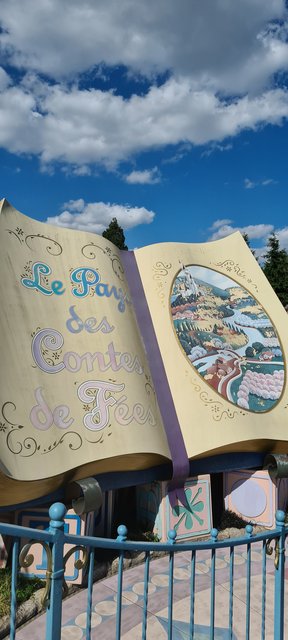 Le Pays
des
Contes
de Fées